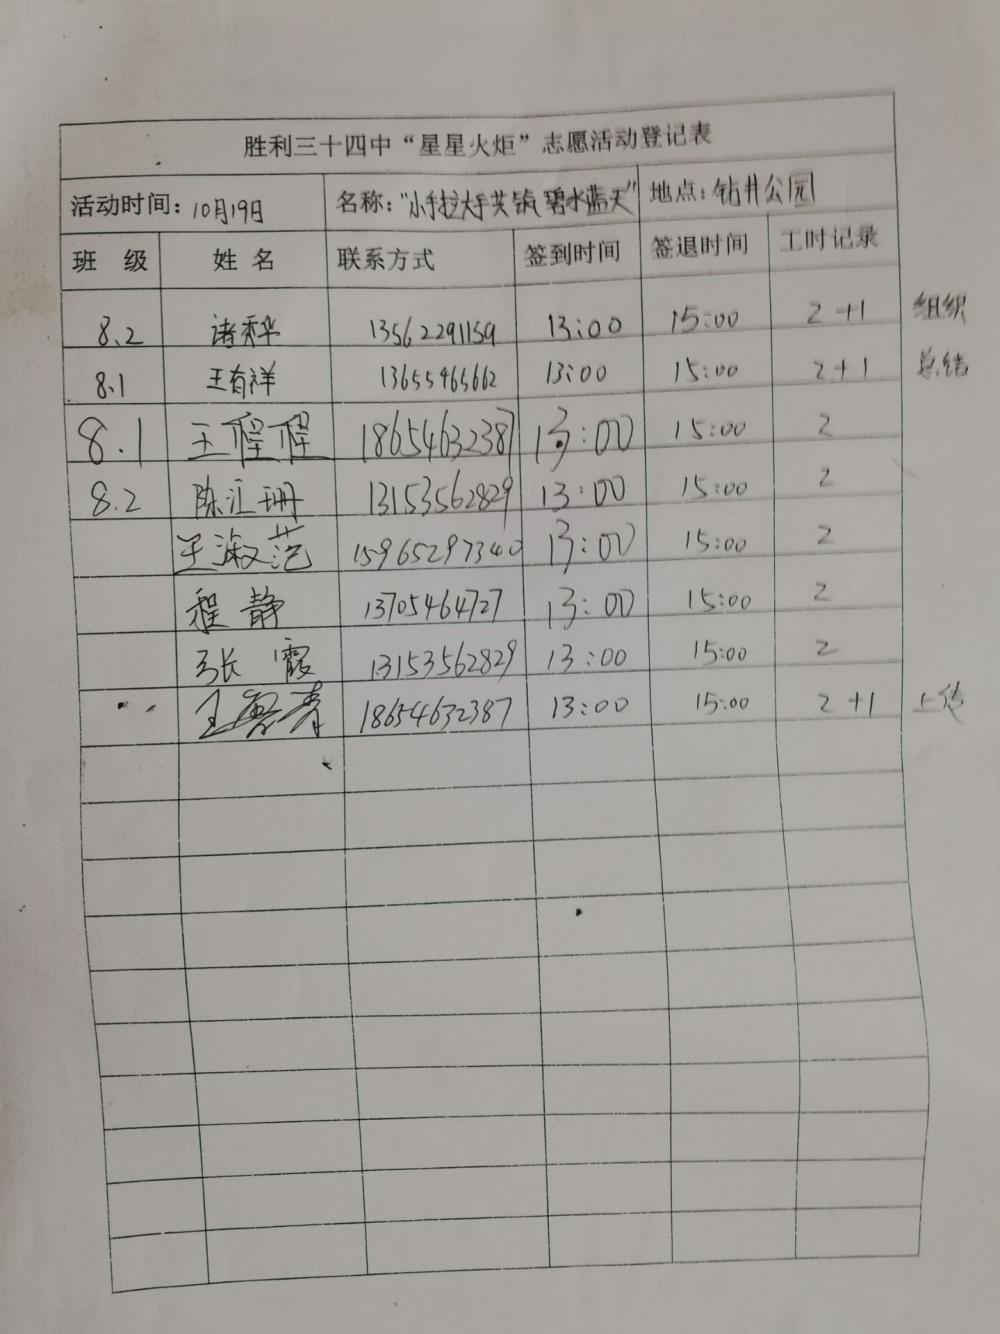 胜利三十四中“星星火炬”志愿活动登记表
活动时间：10月19日 名称：“小手拉大手共筑碧水蓝天” 地点：钻井公园
班 级 姓 名 联系方式 签到时间 签退时间 工时记录
8.2 13562291159 13:00 15:00 2+1 组织
8.1 王有祥 13655465662 13:00 15:00 2+1 总结
8.1 王程程 18654632387 13:00 15:00 2
8.2 陈汇珊 13153562829 13:00 15:00 2
王淑范 15965297340 13:00 15:00 2
程静 13705464727 13:00 15:00 2
张霞 13153562829 13:00 15:00 2
王 青 18654632387 13:00 15:00 2+1 上传